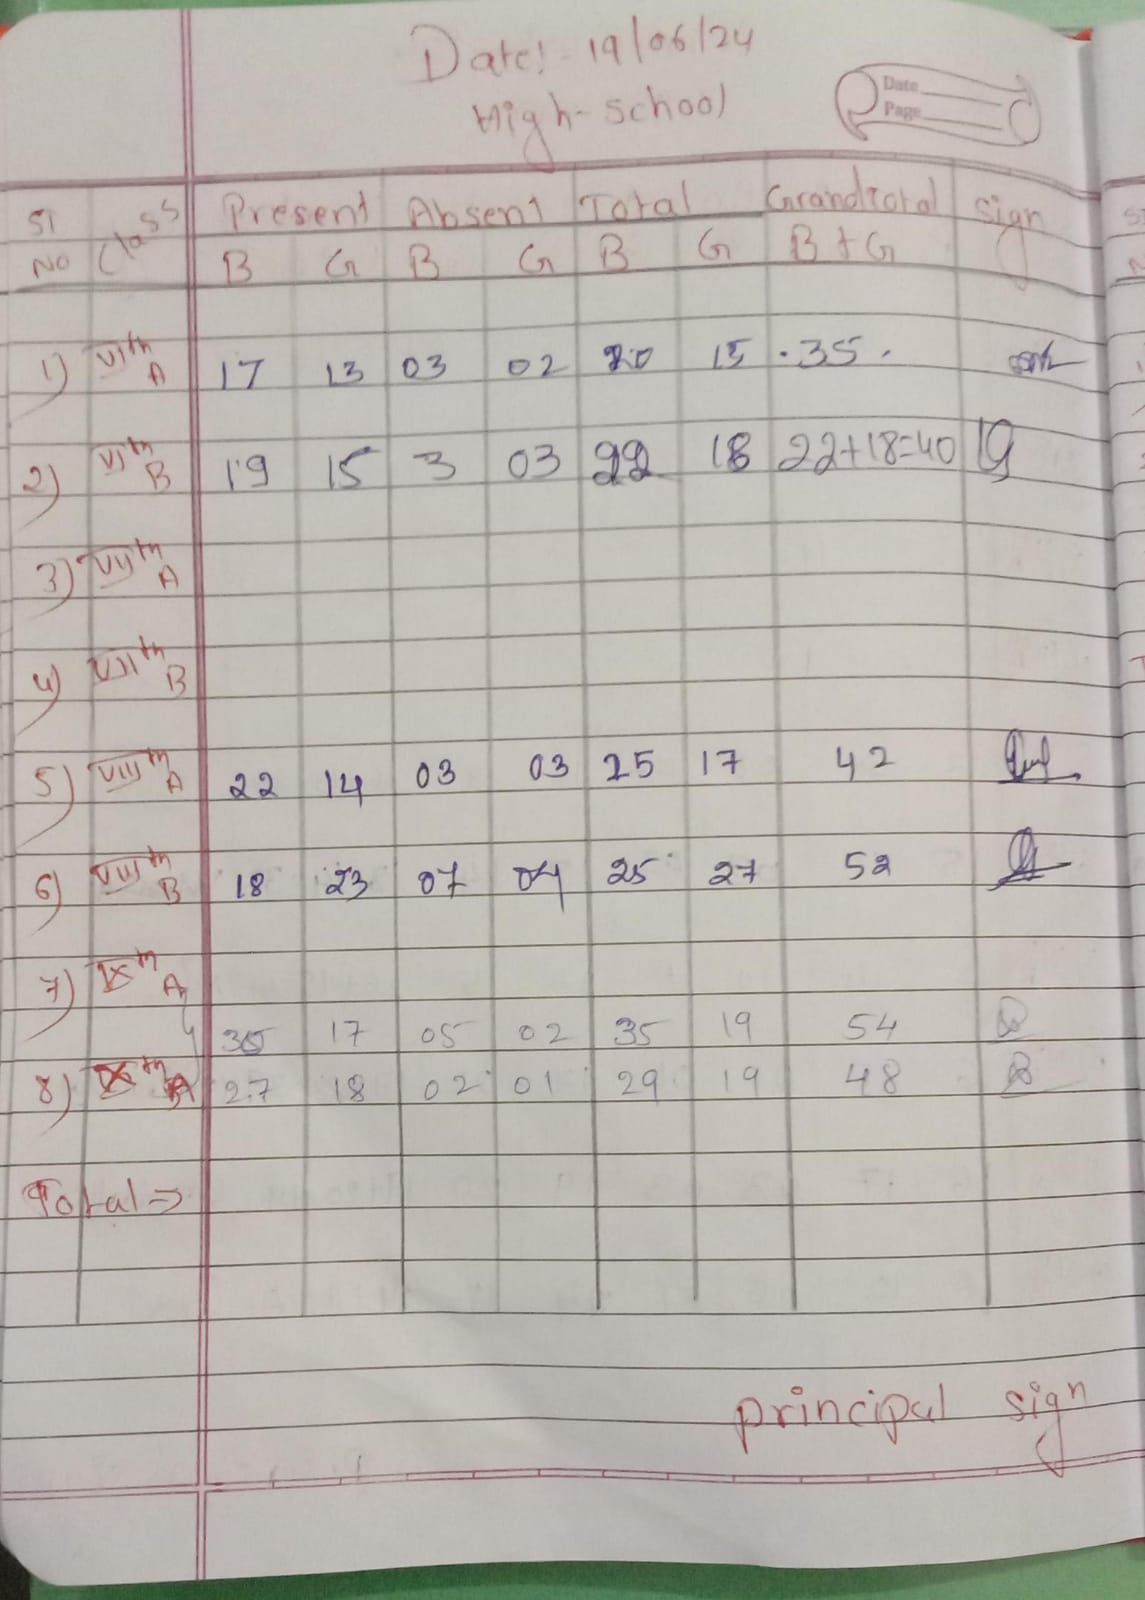 Date:- 19/06/24
High-school
Date
Page
Sl No Class Present Absent Total Grandtotal Sign
B G B G B G B+G
1) VIth A 17 13 03 02 20 15 .35.
2) VIth B 19 15 3 03 22 18 22+18=40
3) VIIth A
4) VIIth B
5) VIIIth A 22 14 03 03 25 17 42
6) VIIIth B 18 23 07 04 25 27 52
7) IXth A
30 17 05 02 35 19 54
8) IXth 27 18 02 01 29 19 48
Total ⇒
principal sign